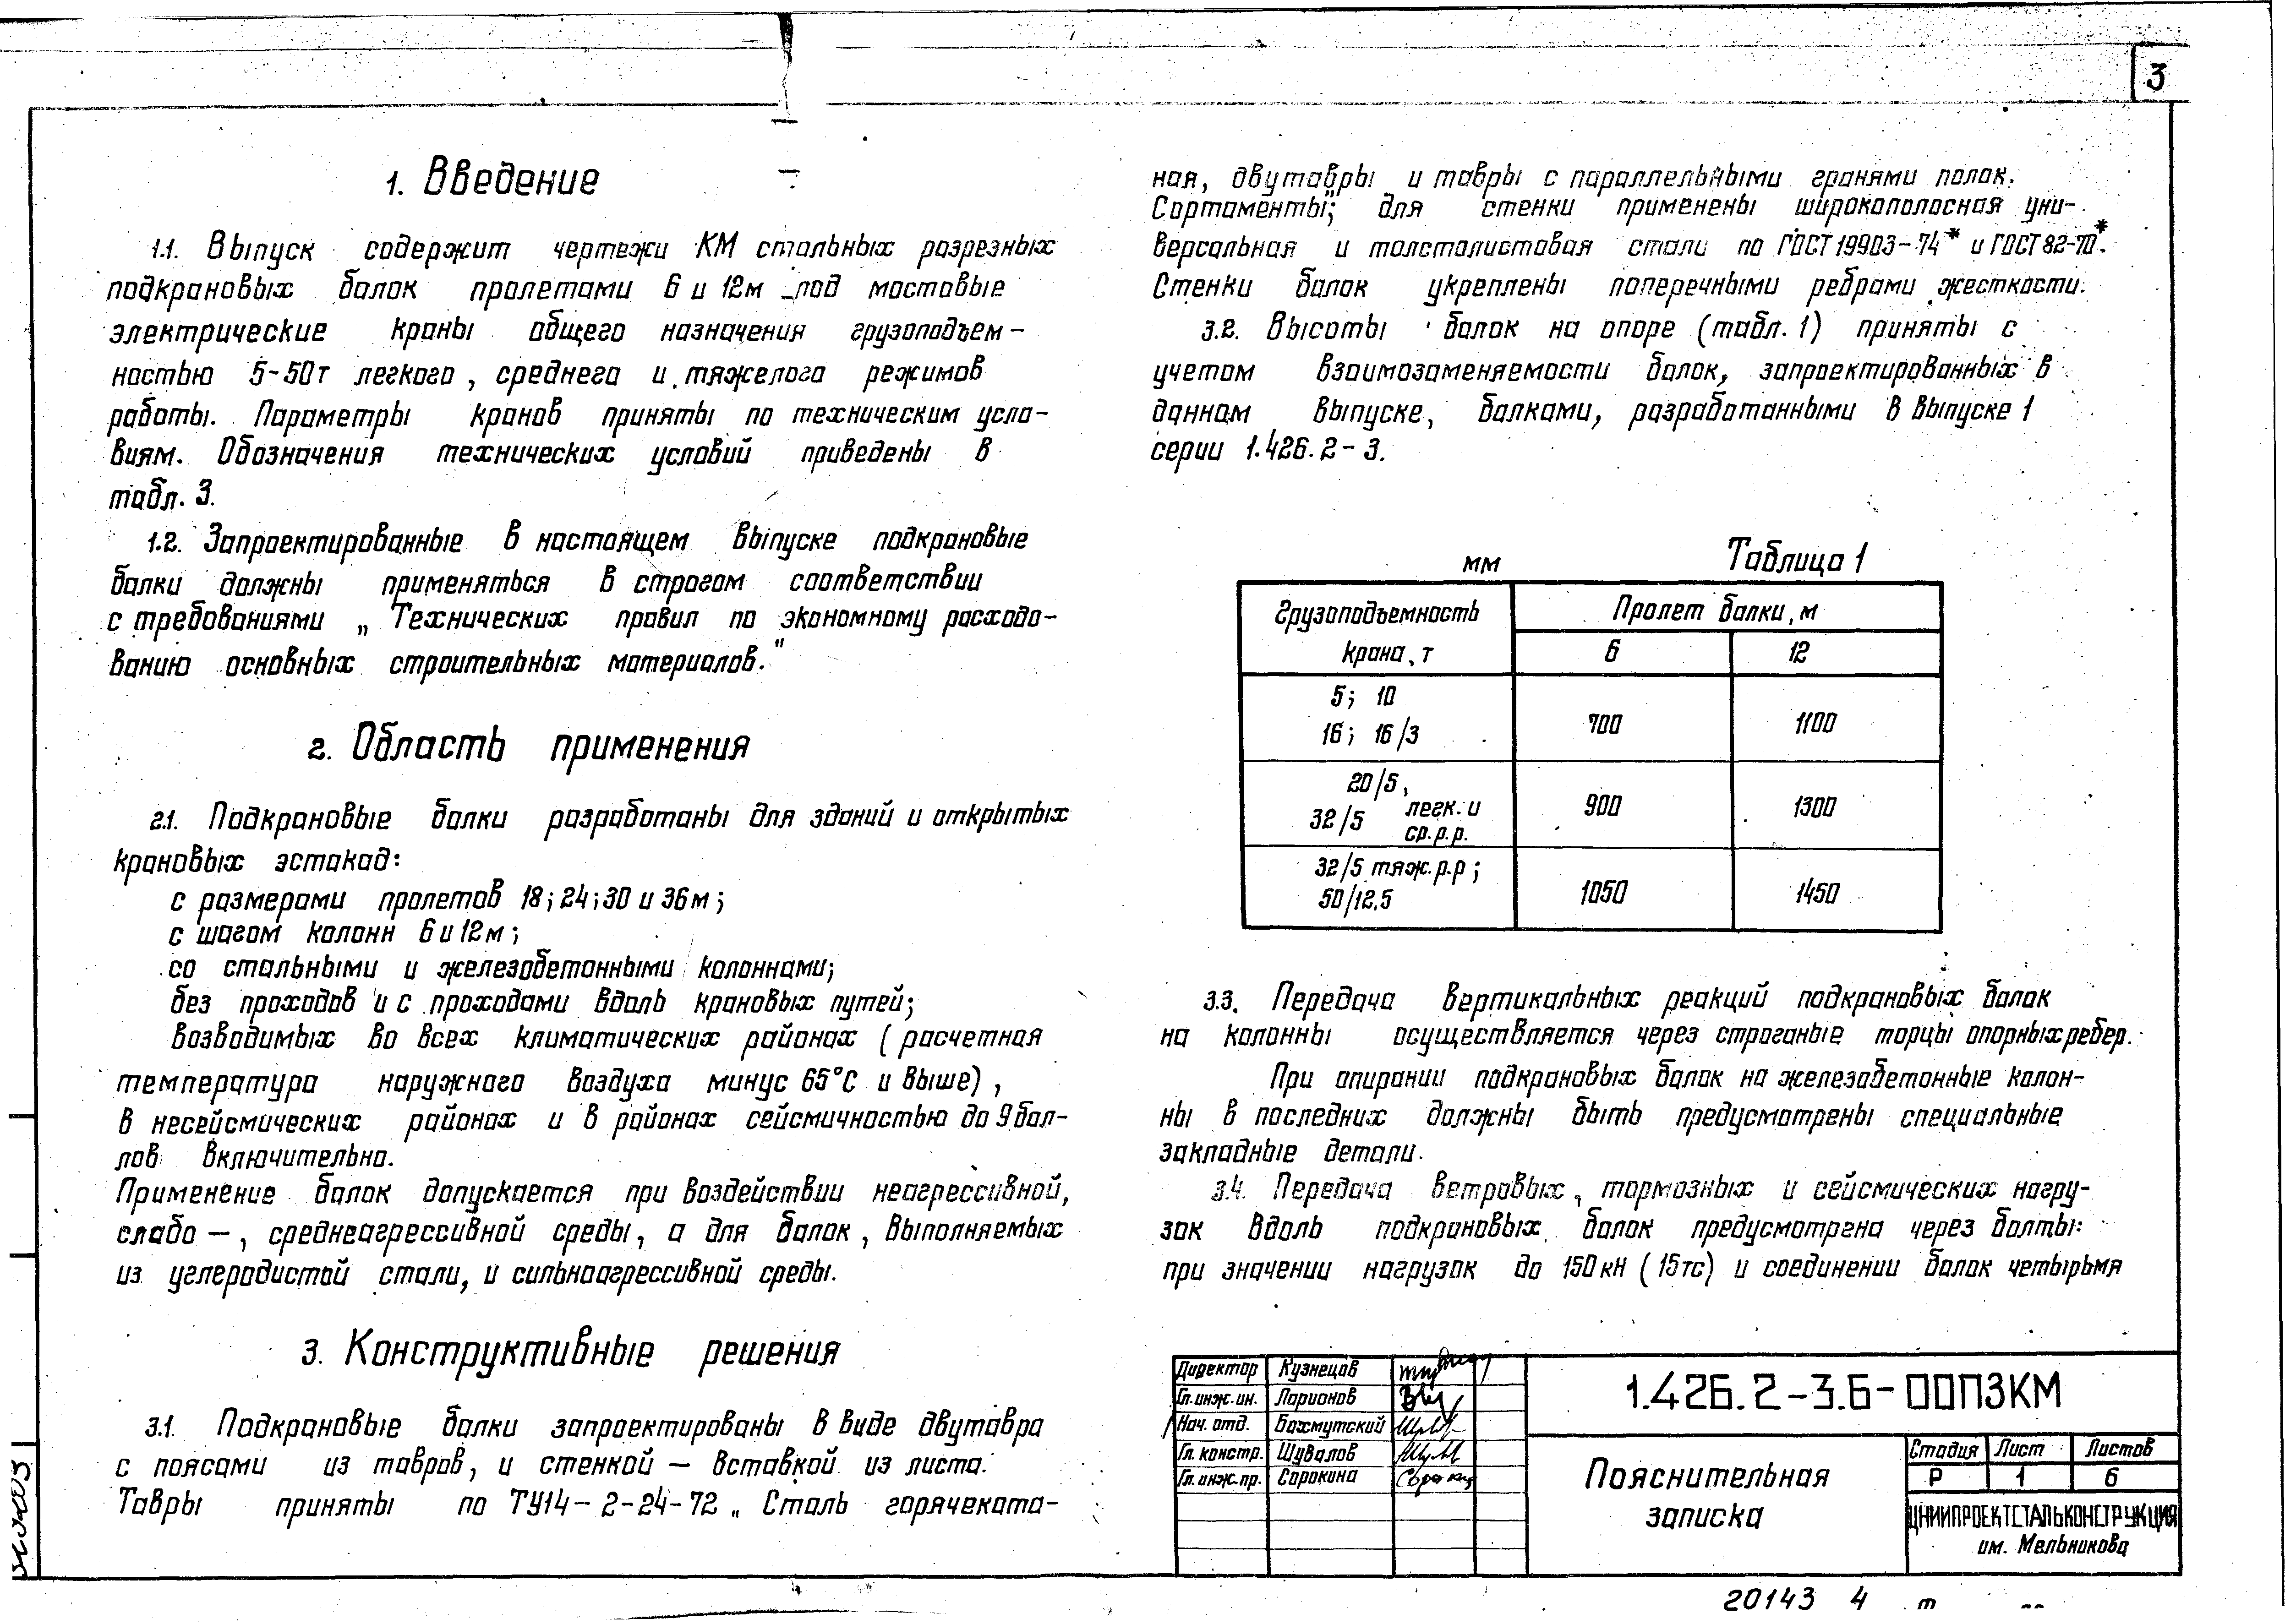 3
1. Введение
1.1. Выпуск содержит чертежи КМ стальных разрезных
подкрановых балок пролетами 6 и 12м под мостовые
электрические краны общего назначения грузоподъем-
ностью 5-50т легкого, среднего и тяжелого режимов
работы. Параметры кранов приняты по техническим усло-
виям. Обозначения технических условий приведены в
табл. 3.
1.2. Запроектированные в настоящем выпуске подкрановые
балки должны применяться в строгом соответствии
с требованиями „Технических правил по экономному расходо-
ванию основных строительных материалов."
2. Область применения
2.1. Подкрановые балки разработаны для зданий и открытых
крановых эстакад:
с размерами пролетов 18; 24; 30 и 36м;
с шагом колонн 6 и 12м;
со стальными и железобетонными колоннами;
без проходов и с проходами вдоль крановых путей;
возводимых во всех климатических районах (расчетная
температура наружного воздуха минус 65°С и выше),
в несейсмических районах и в районах сейсмичностью до 9 бал-
лов включительно.
Применение балок допускается при воздействии неагрессивной,
слабо-, среднеагрессивной среды, а для балок, выполняемых
из углеродистой стали, и сильноагрессивной среды.
3. Конструктивные решения
3.1. Подкрановые балки запроектированы в виде двутавра
с поясами из тавров, и стенкой - вставкой из листа.
Тавры приняты по ТУ14-2-24-72 „Сталь горячеката-
ная, двутавры и тавры с параллельными гранями полок.
Сортаменты"; для стенки применены широкополосная уни-
версальная и толстолистовая стали по ГОСТ 19903-74* и ГОСТ 82-70*.
Стенки балок укреплены поперечными ребрами жесткости.
3.2. Высоты балок на опоре (табл. 1) приняты с
учетом взаимозаменяемости балок, запроектированных в
данном выпуске, балками, разработанными в выпуске 1
серии 1.426.2-3.
мм Таблица 1
Грузоподъемность крана, т Пролет балки, м
6 12
5; 10
16; 16/3 700 1100
20/5,
32/5 легк. и ср. р.р. 900 1300
32/5 тяж. р.р;
50/12,5 1050 1450
3.3. Передача вертикальных реакций подкрановых балок
на колонны осуществляется через строганые торцы опорных ребер.
При опирании подкрановых балок на железобетонные колон-
ны в последних должны быть предусмотрены специальные
закладные детали.
3.4. Передача ветровых, тормозных и сейсмических нагру-
зок вдоль подкрановых балок предусмотрена через болты:
при значении нагрузок до 150 кН (15тс) и соединении балок четырьмя
Директор Кузнецов
Гл. инж. ин. Ларионов
Нач. отд. Бахмутский
Гл. констр. Шувалов
Гл. инж. пр. Сорокина
1.426.2-3.6-00ПЗКМ
Пояснительная
записка
Стадия Лист Листов
Р 1 6
ЦНИИПРОЕКТСТАЛЬКОНСТРУКЦИЯ
им. Мельникова
20143 4